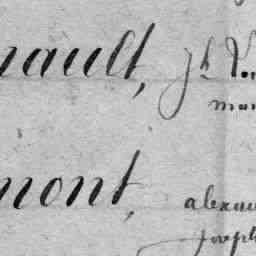 nault, Jh
mont, alexan
joseph